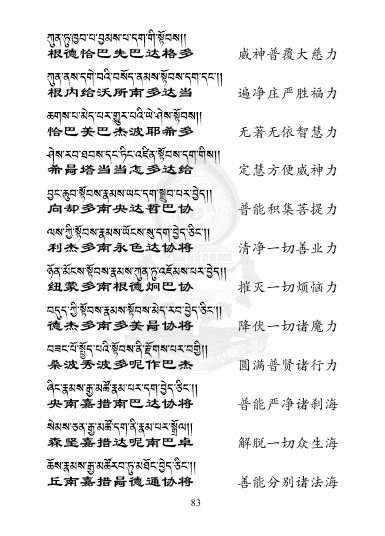 ཀུན་ཏུ་ཁྱབ་པ་བྱམས་པ་དག་གི་སྟོབས།།
根德恰巴先巴达格多 威神普覆大慈力
ཀུན་ནས་དགེ་བའི་བསོད་ནམས་སྟོབས་དག་དང་།།
根内给沃所南多达当 遍净庄严胜福力
ཆགས་པ་མེད་པར་གྱུར་པའི་ཡེ་ཤེས་སྟོབས།།
恰巴美巴杰波耶希多 无著无依智慧力
ཤེས་རབ་ཐབས་དང་ཏིང་འཛིན་སྟོབས་དག་གིས།།
希局塔当当怎多达给 定慧方便威神力
བྱང་ཆུབ་སྟོབས་རྣམས་ཡང་དག་སྒྲུབ་པར་བྱེད།།
向却多南央达哲巴协 普能积集菩提力
ལས་ཀྱི་སྟོབས་རྣམས་ཡོངས་སུ་དག་བྱེད་ཅིང་།།
利杰多南永色达协将 清净一切善业力
ཉོན་མོངས་སྟོབས་རྣམས་ཀུན་ཏུ་འཇོམས་པར་བྱེད།།
纽蒙多南根德炯巴协 摧灭一切烦恼力
བདུད་ཀྱི་སྟོབས་རྣམས་སྟོབས་མེད་རབ་བྱེད་ཅིང་།།
德杰多南多美局协将 降伏一切诸魔力
བཟང་པོ་སྤྱོད་པའི་སྟོབས་ནི་རྫོགས་པར་བགྱི།།
桑波秀波多呢作巴杰 圆满普贤诸行力
ཞིང་རྣམས་རྒྱ་མཚོ་རྣམ་པར་དག་བྱེད་ཅིང་།།
央南嘉措南巴达协将 普能严净诸刹海
སེམས་ཅན་རྒྱ་མཚོ་དག་ནི་རྣམ་པར་སྒྲོལ།།
森坚嘉措达呢南巴卓 解脱一切众生海
ཆོས་རྣམས་རྒྱ་མཚོ་རབ་ཏུ་མཐོང་བྱེད་ཅིང་།།
丘南嘉措局德通协将 善能分别诸法海
83